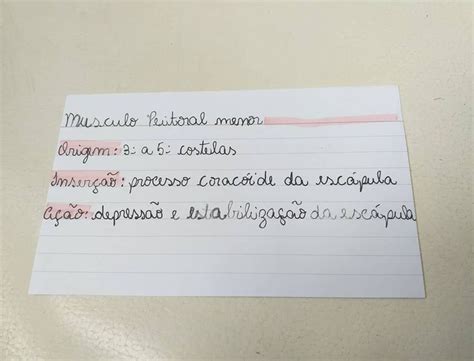 Musculo Peitoral menor
Origem: 3ª a 5ª costelas
Inserção: processo coracóide da escápula
Ação: depressão e estabilização da escápula